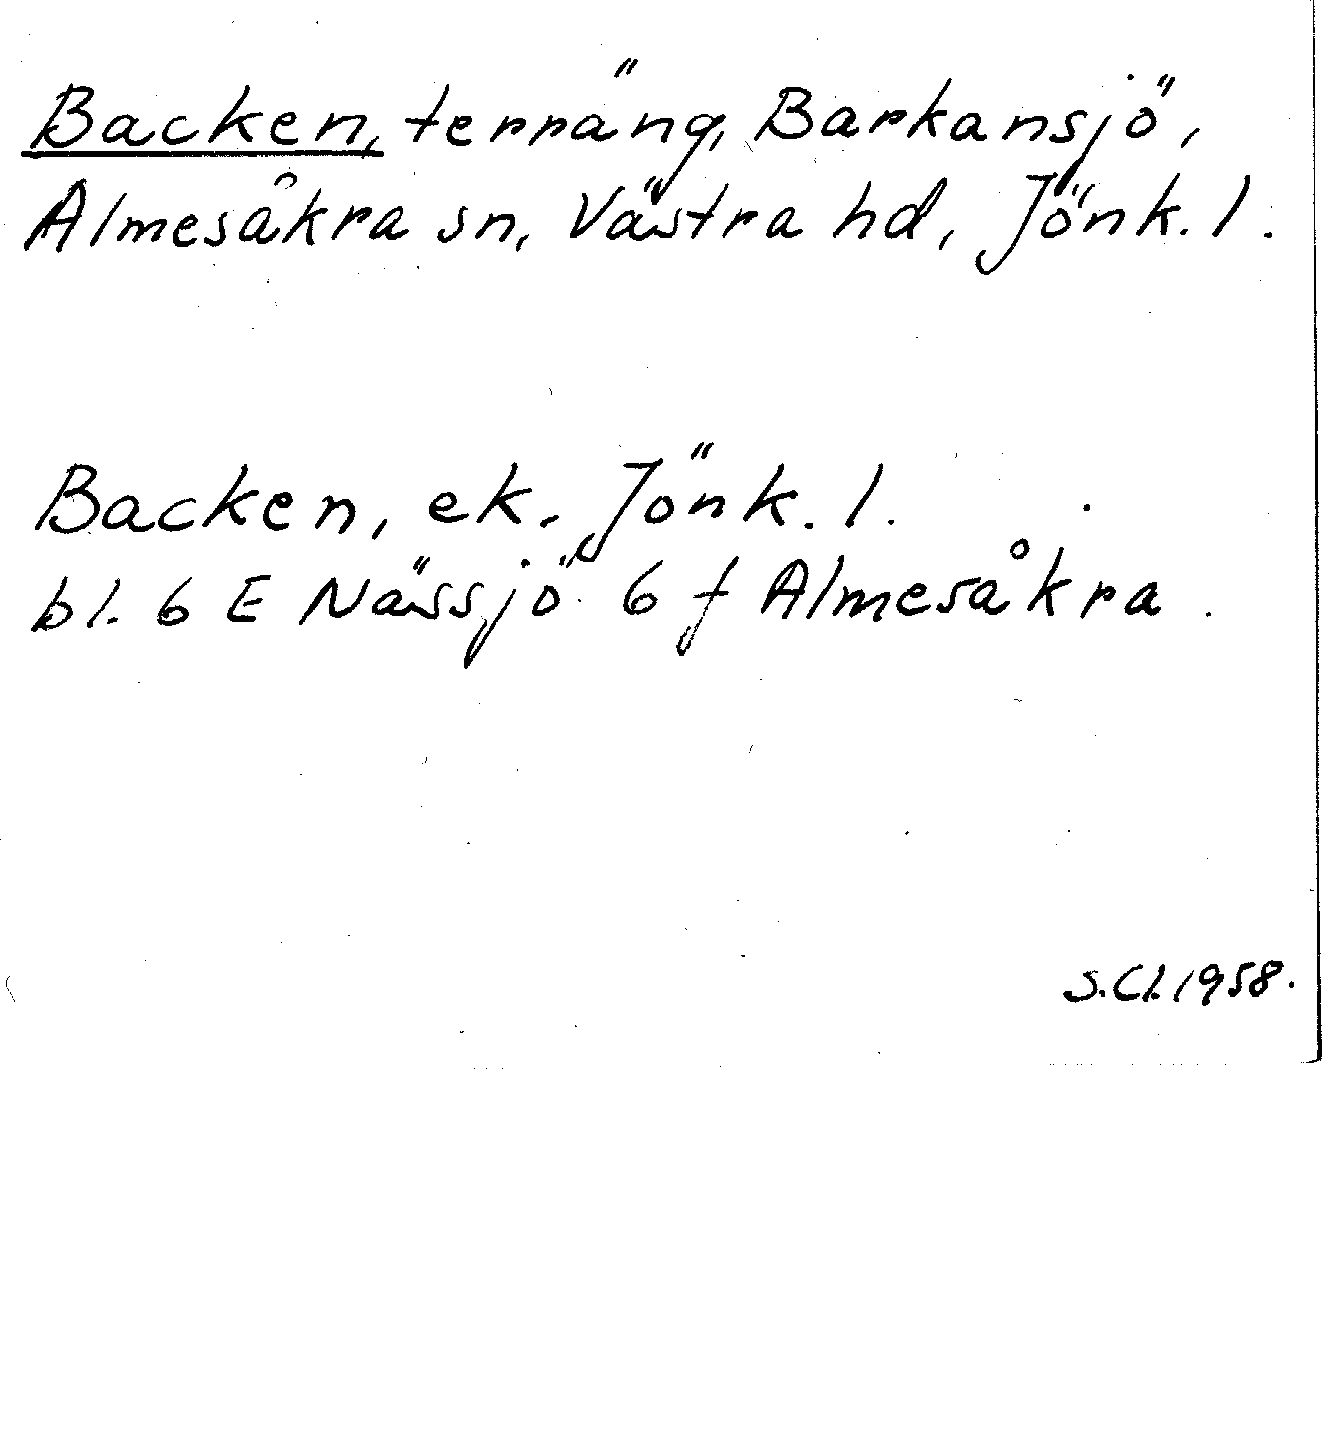 Backen, terräng, Barkansjö,
Almesåkra sn, Västra hd, Jönk. l.
Backen, ek. Jönk. l.
bl. 6 E Nässjö 6 f Almesåkra.
S.Cl. 1958.